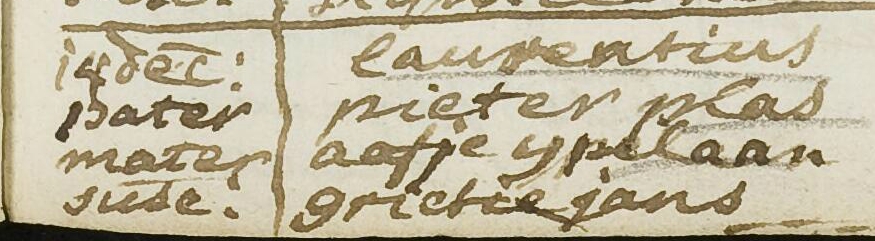 14 dec: laurentius
pater pieter plas
mater aafje ypelaan
susc: grietie jans